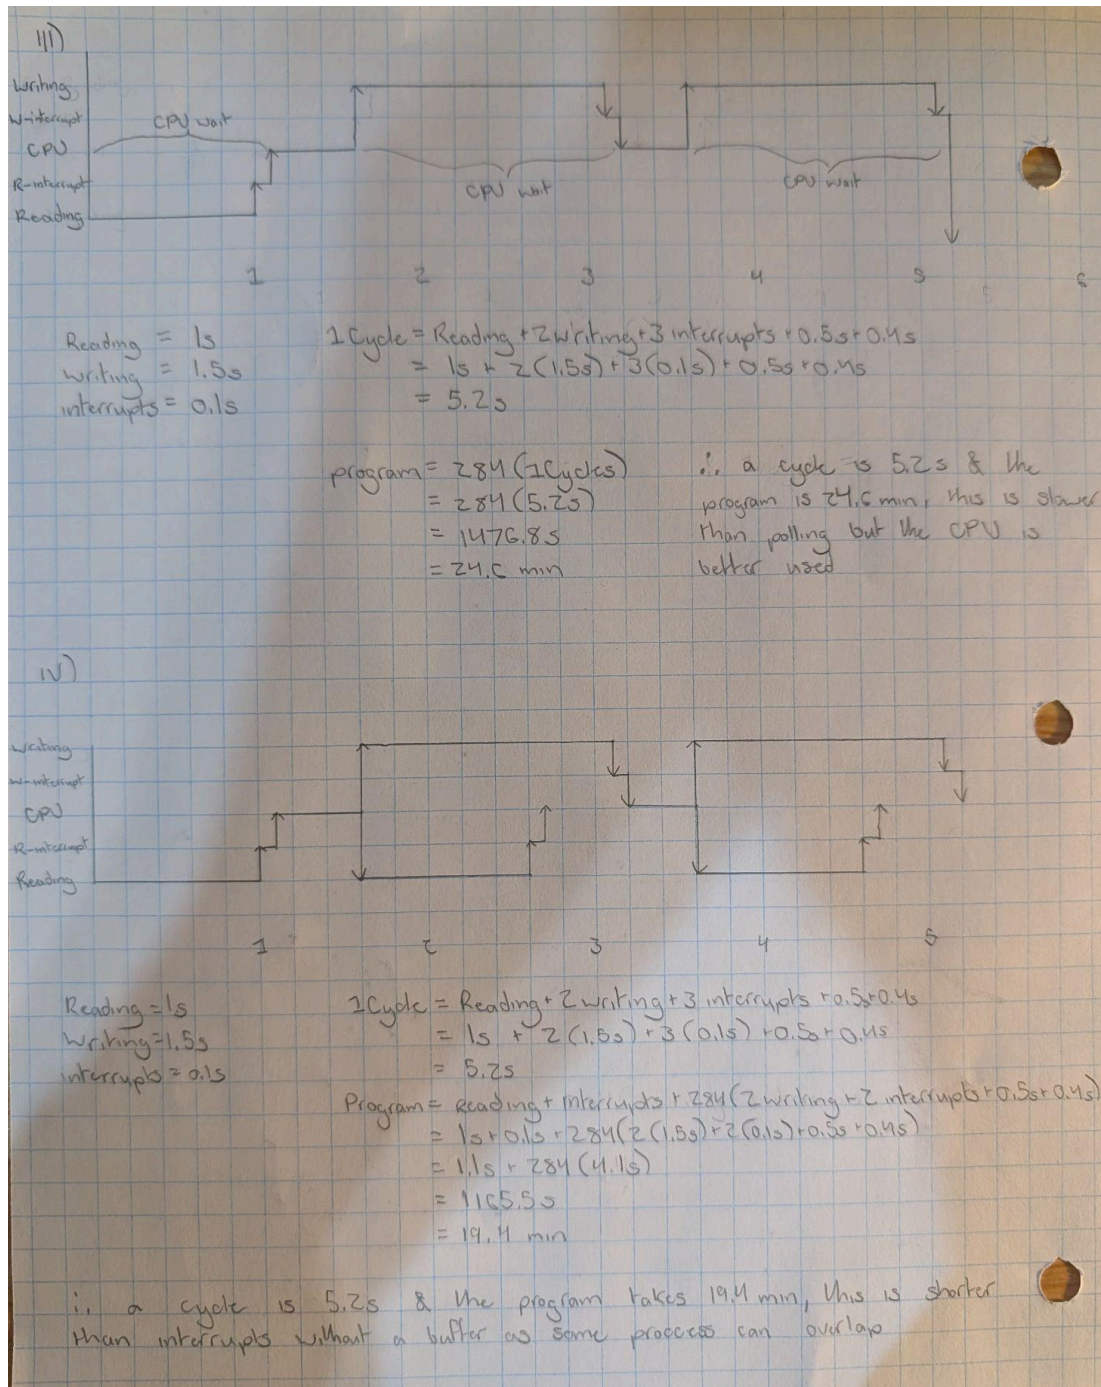 iii)
Writing
W-interrupt
CPU wait
CPU
R-interrupt
CPU wait
CPU wait
Reading
1 2 3 4 5 6
Reading = 1s
1 Cycle = Reading + 2 writing + 3 interrupts + 0.5s + 0.4s
writing = 1.5s
= 1s + 2(1.5s) + 3(0.1s) + 0.5s + 0.4s
interrupts = 0.1s
= 5.2s
program = 284 (1 Cycles)
= 284 (5.2s)
= 1476.8s
= 24.6 min
∴ a cycle is 5.2s & the
program is 24.6 min, this is slower
than polling but the CPU is
better used
iv)
Writing
W-interrupt
CPU
R-interrupt
Reading
1 2 3 4 5
Reading = 1s
1 Cycle = Reading + 2 writing + 3 interrupts + 0.5s + 0.4s
Writing = 1.5s
= 1s + 2(1.5s) + 3(0.1s) + 0.5s + 0.4s
interrupts = 0.1s
= 5.2s
Program = Reading + interrupts + 284(2 writing + 2 interrupts + 0.5s + 0.4s)
= 1s + 0.1s + 284(2(1.5s) + 2(0.1s) + 0.5s + 0.4s)
= 1.1s + 284(4.1s)
= 1165.5s
= 19.4 min
∴ a cycle is 5.2s & the program takes 19.4 min, this is shorter
than interrupts without a buffer as some proccess can overlap